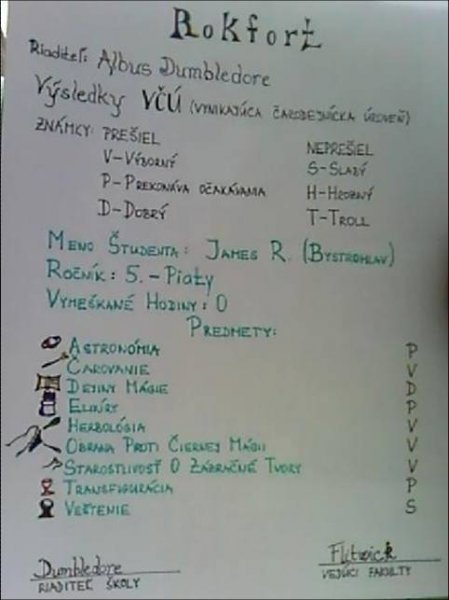 Rokfort
Riaditeľ: Albus Dumbledore
Výsledky VČÚ (VYNIKAJÚCA ČARODEJNÍCKA ÚROVEŇ)
ZNÁMKY: PREŠIEL NEPREŠIEL
V-VÝBORNÝ S-SLABÝ
P-PREKONÁVA OČAKÁVANIA H-HROZNÝ
D-DOBRÝ T-TROLL
MENO ŠTUDENTA: JAMES R. (BYSTROHLAV)
ROČNÍK: 5. - PIATY
VYMEŠKANÉ HODINY: 0
PREDMETY:
ASTRONÓMIA P
ČAROVANIE V
DEJINY MÁGIE D
ELIXÍRY P
HERBOLÓGIA V
OBRANA PROTI ČIERNEJ MÁGII V
STAROSTLIVOSŤ O ZÁZRAČNÉ TVORY V
TRANSFIGURÁCIA P
VEŠTENIE S
Dumbledore Flitwick
RIADITEĽ ŠKOLY VEDÚCI FAKULTY